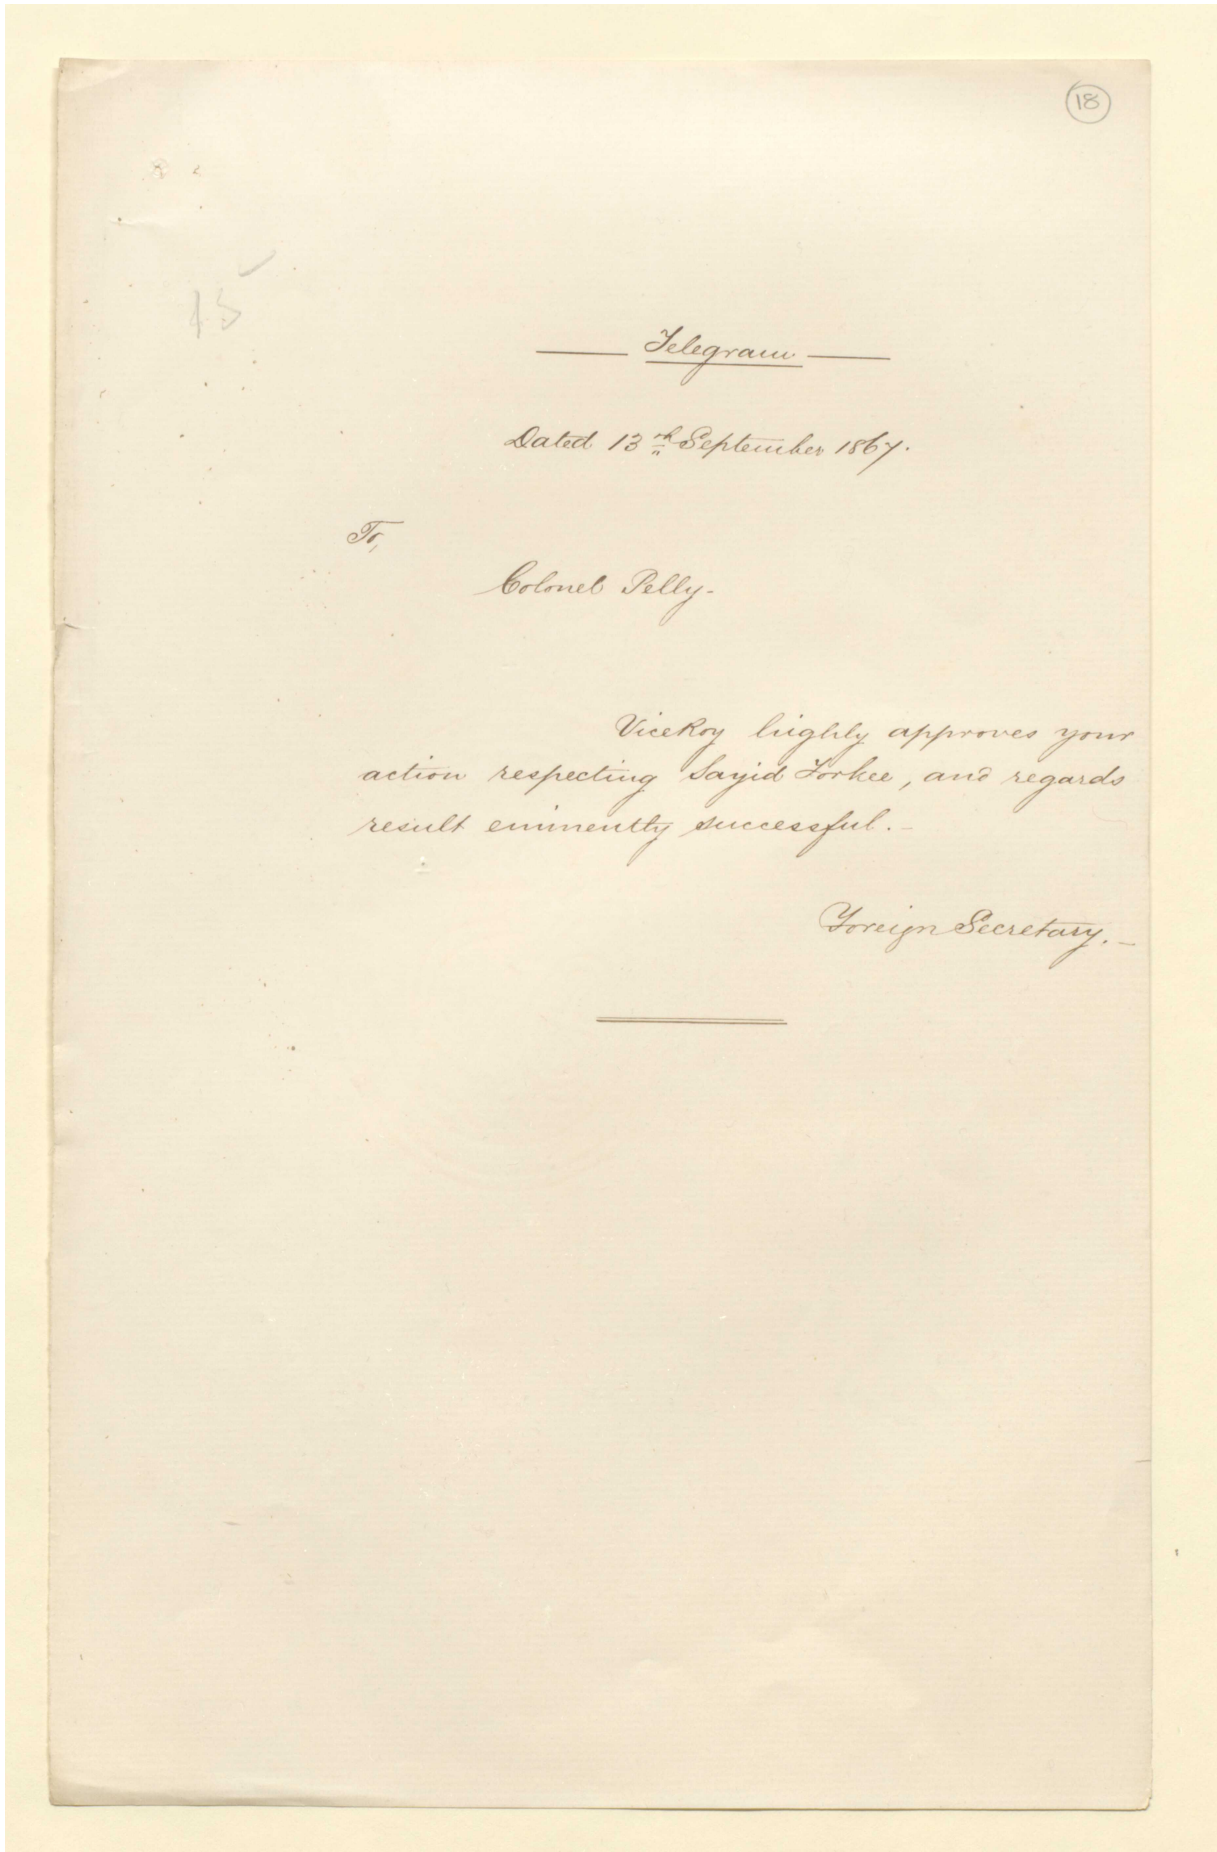 18
15
Telegram
Dated 13th September 1867.
To,
Colonel Pelly-
Viceroy highly approves your
action respecting Sayid Torkee, and regards
result eminently successful.-
Foreign Secretary.-